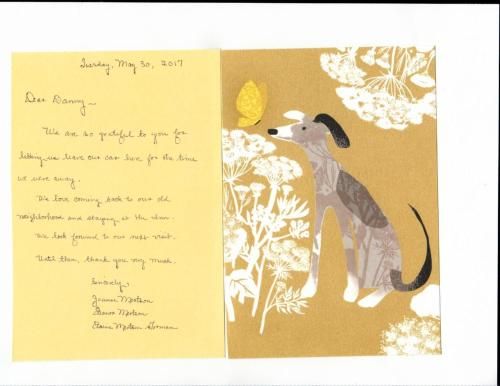 Tuesday, May 30, 2017
Dear Danny ~
We are so grateful to you for
letting us leave our car here for the time
we were away.
We love coming back to our old
neighborhood and staying at the Inn.
We look forward to our next visit.
Until then, thank you very much.
Sincerely,
Joanne
Elaine